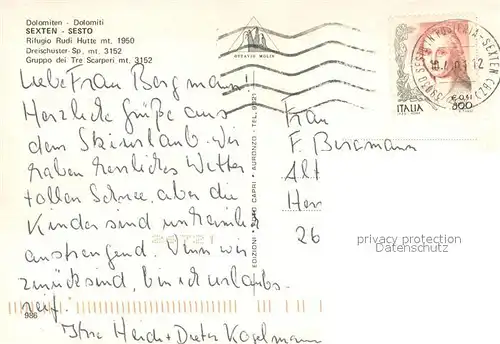 Dolomiten - Dolomiti
SEXTEN - SESTO
Rifugio Rudi Hutte mt. 1950
Dreischuster-Sp. mt. 3152
Gruppo dei Tre Scarperi mt. 3152
Liebe Frau Bergmann!
Herzliche Grüße aus
dem Skiurlaub. Wir
haben herrliches Wetter
tollen Schnee, aber die
Kinder sind
anstrengend. Wenn wir
zurück sind, bin ich urlaubs-
reif.
Ihre Heidi + Dieter Kogelmann
986
OTTAVIO MOLIN
EDIZIONI FOTO CAPRI * AURONZO - TEL. 9721
ITALIA
€ 0,41
800
SESTO IN PUSTERIA - SEXTEN
39030 (BZ)
12
Frau
F. Bergmann
Alt
Her
26
privacy protection
Datenschutz